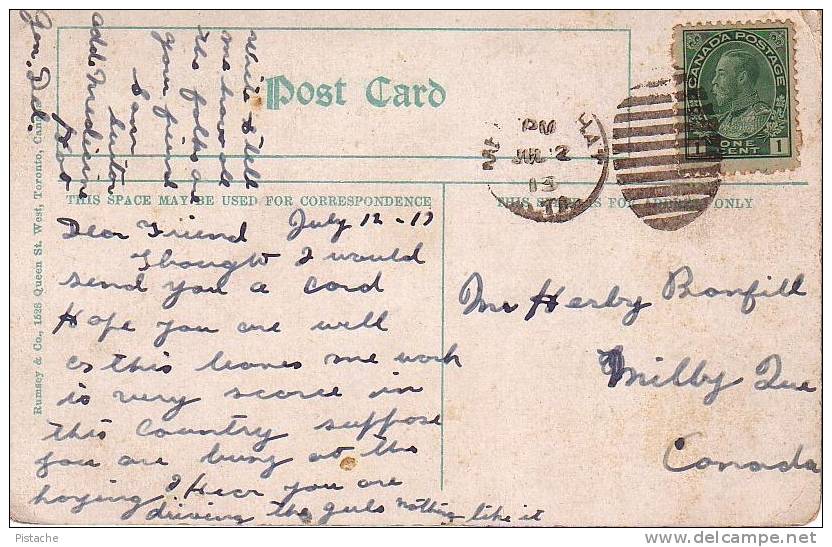 Post Card
THIS SPACE MAY BE USED FOR CORRESPONDENCE
THIS SPACE IS FOR ADDRESS ONLY
Rumsey & Co., 1528 Queen St. West, Toronto, Can
CANADA POSTAGE
ONE CENT
1 1
HAT
PM
JUL 2
13
July 12-13
Dear Friend
Thought I would
send you a card
Hope you are well
as this leaves me work
is very scarce in
this country suppose
you are busy at the
haying I Hear you are
driving the guls nothing like it
write & tell
me how all
the folks are
your friend
Sam
add Medicine
Hat
Gen. Del.
Mr Herby Bonfill
Milby Que
Canada
Pistache